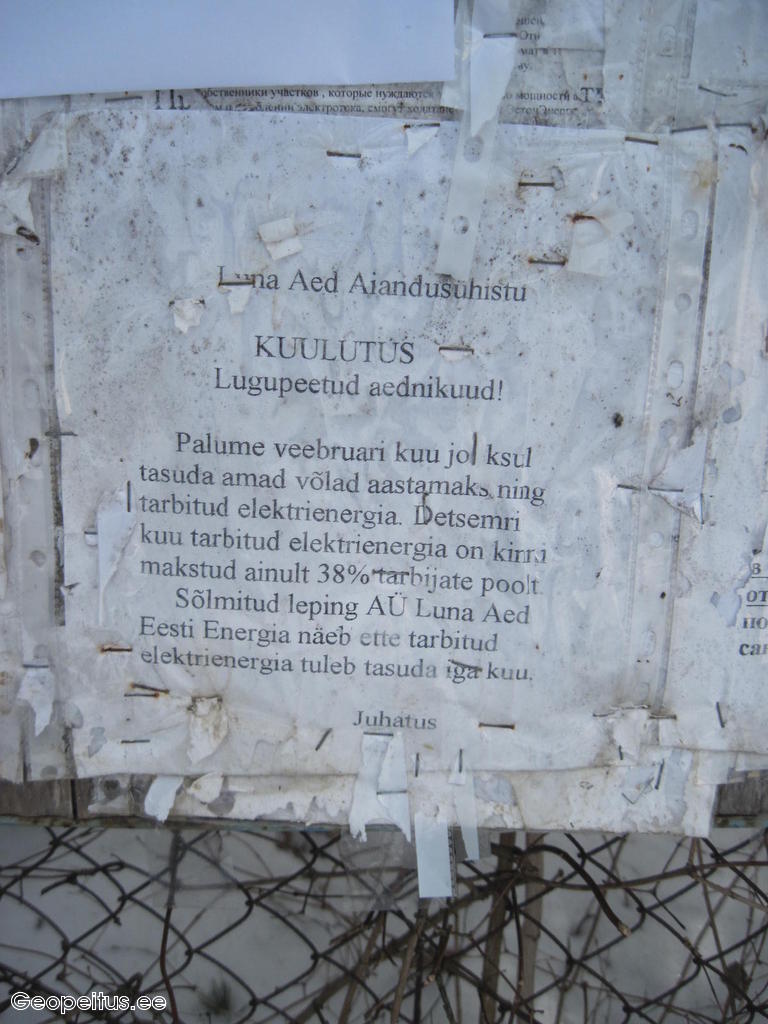 бственники участков , которые нуждаются
мощности
электротока, смогут
Luna Aed Aiandusühistu
KUULUTUS
Lugupeetud aednikuud!
Palume veebruari kuu jooksul
tasuda amad võlad aastamaks ning
tarbitud elektrienergia. Detsemri
kuu tarbitud elektrienergia on kinni
makstud ainult 38% tarbijate poolt.
Sõlmitud leping AÜ Luna Aed
Eesti Energia näeb ette tarbitud
elektrienergia tuleb tasuda iga kuu.
Juhatus
Geopeitus.ee